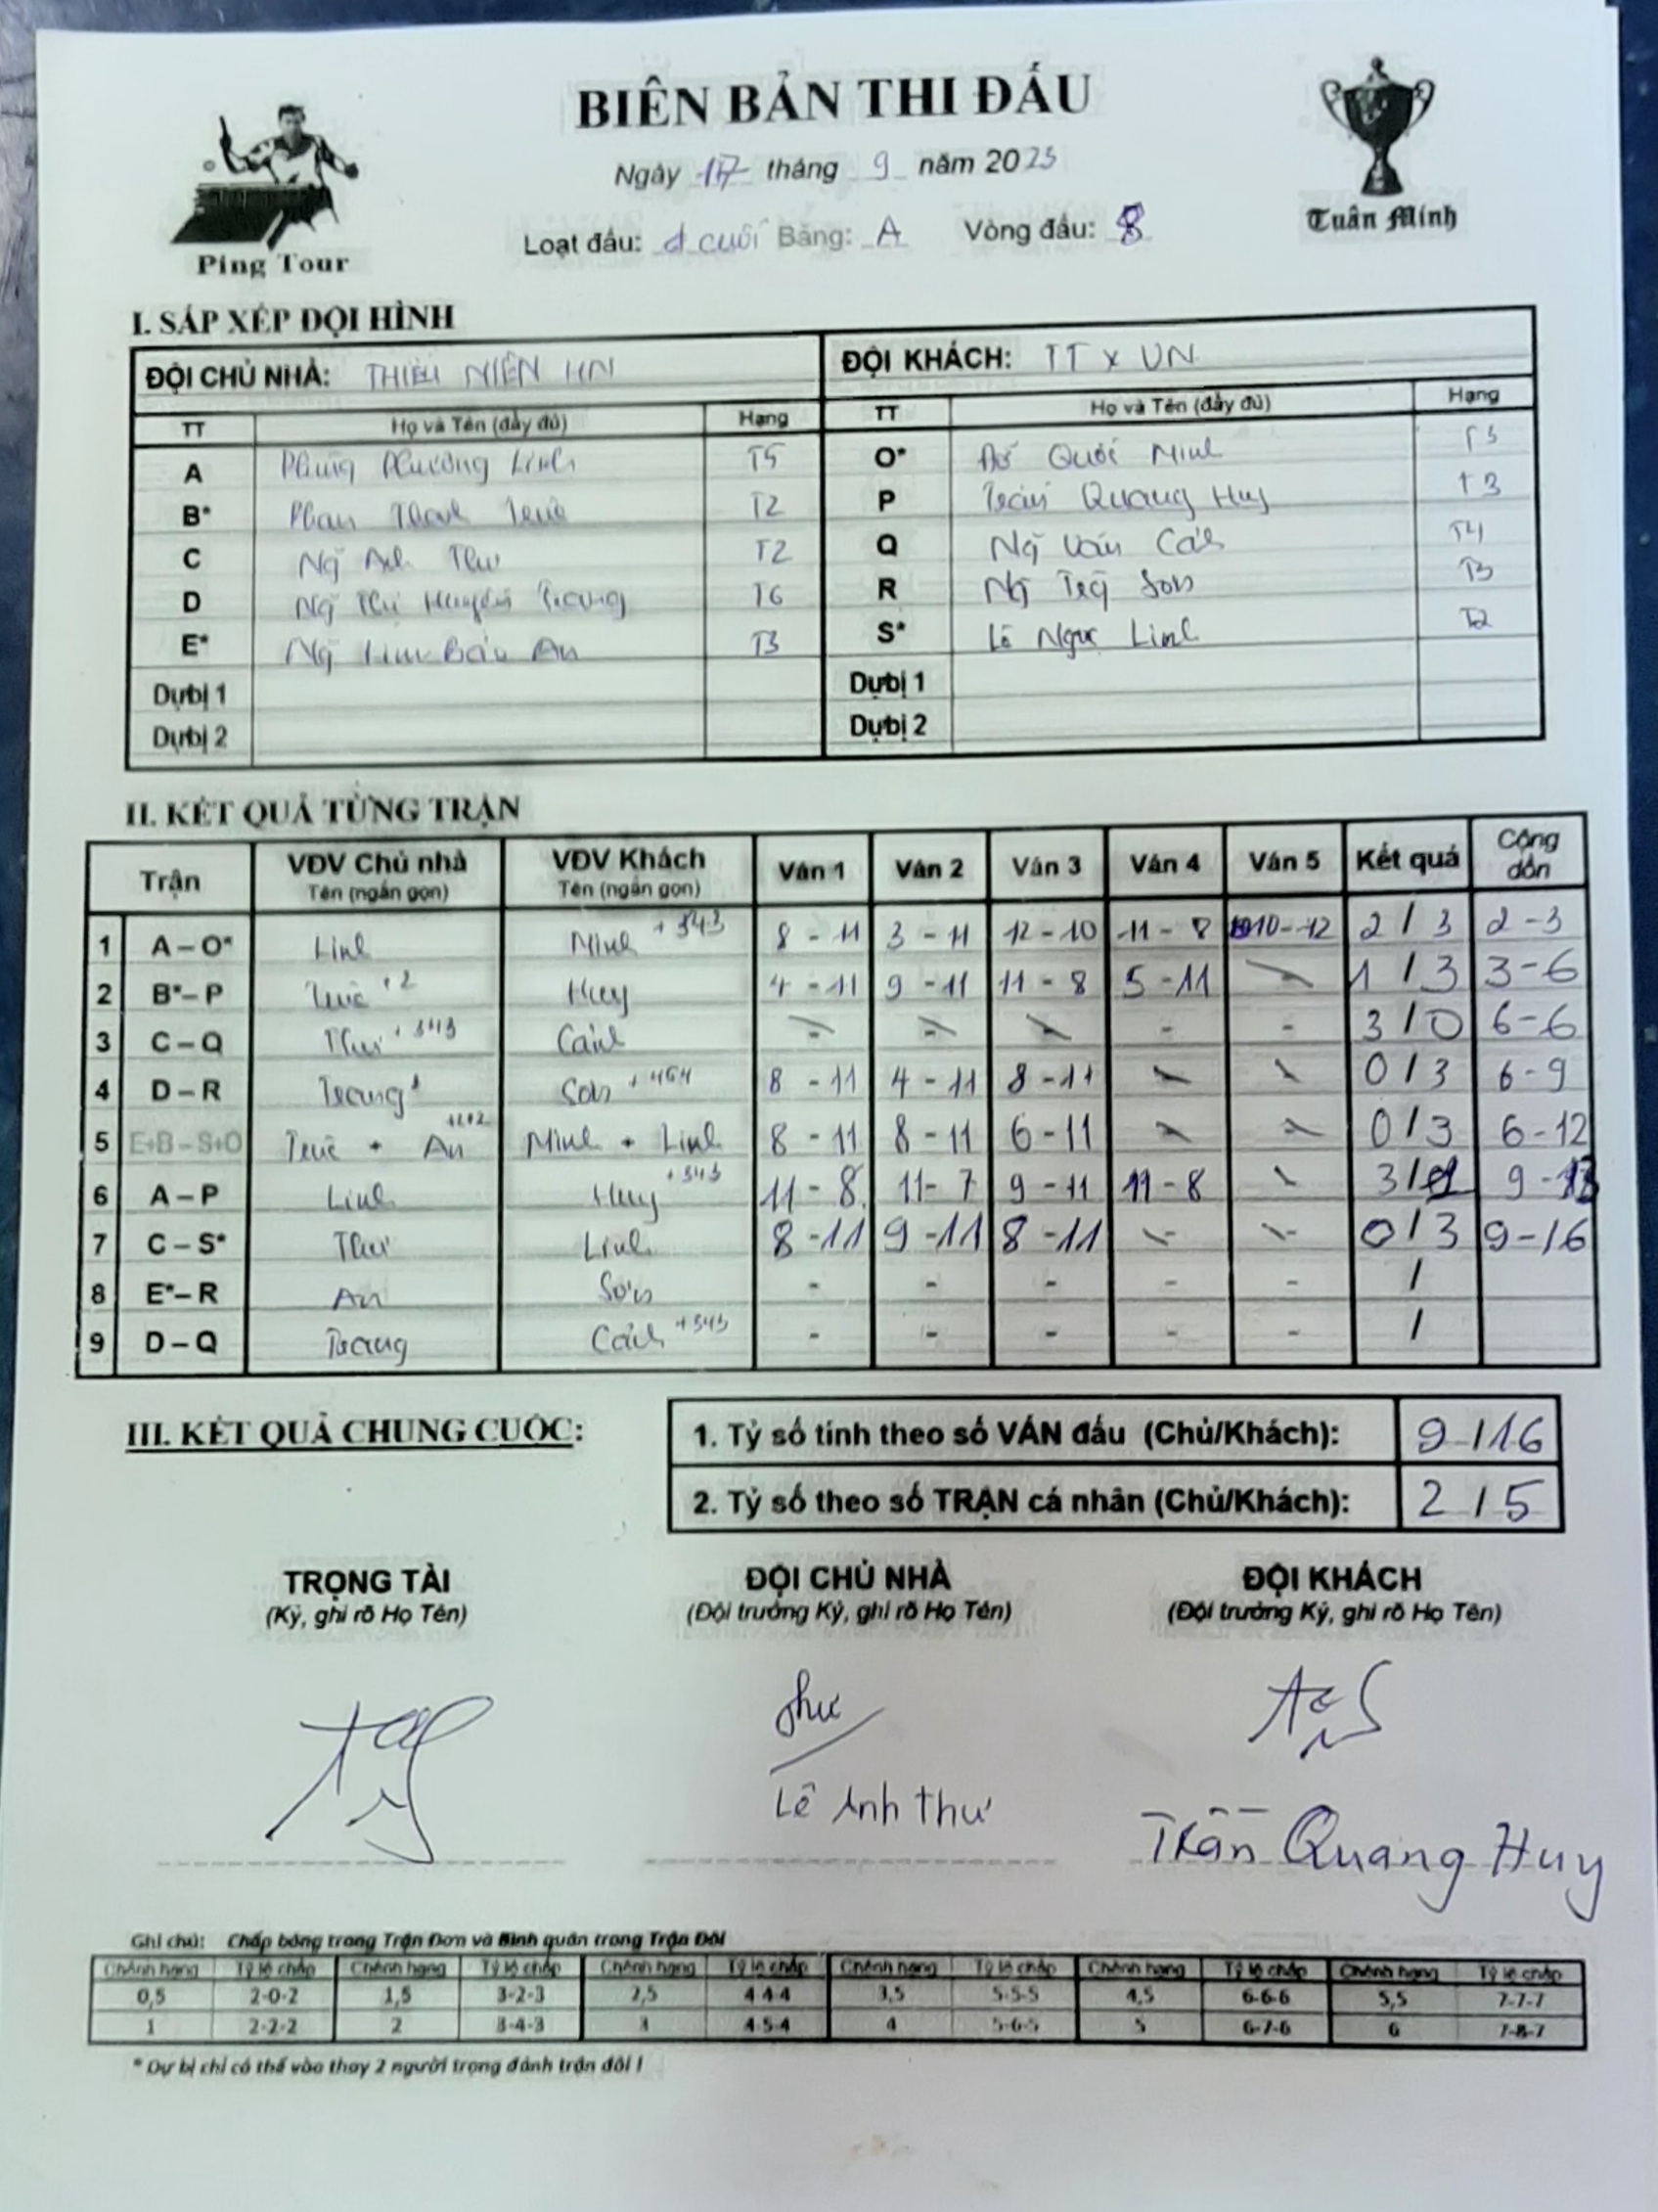 BIÊN BẢN THI ĐẤU
Ngày 17 tháng 9 năm 2023
Loạt đấu: d cuối Bảng: A Vòng đấu: 8
Ping Tour
Tuấn Minh
I. SẮP XẾP ĐỘI HÌNH
ĐỘI CHỦ NHÀ: THIẾU NIÊN HN ĐỘI KHÁCH: TT x VN
TT Họ và Tên (đầy đủ) Hạng TT Họ và Tên (đầy đủ) Hạng
A Phùng Phương Linh T5 O* Đỗ Quốc Minh T3
B* Phan Thanh Trúc T2 P Trần Quang Huy T3
C Ng Anh Thư T2 Q Ng Văn Cảnh T4
D Ng Thị Huyền Trang T6 R Ng Sơn T3
E* Ng Bảo An T3 S* Lê Ngọc Linh T2
Dự bị 1 Dự bị 1
Dự bị 2 Dự bị 2
II. KẾT QUẢ TỪNG TRẬN
Trận VĐV Chủ nhà Tên (ngắn gọn) VĐV Khách Tên (ngắn gọn) Ván 1 Ván 2 Ván 3 Ván 4 Ván 5 Kết quả Cộng dồn
1 A – O* Linh Minh +343 8 - 11 3 - 11 12 - 10 11 - 8 10 - 12 2 / 3 2 - 3
2 B* – P Trúc +2 Huy 4 - 11 9 - 11 11 - 8 5 - 11 1 / 3 3 - 6
3 C – Q Thư +343 Cảnh - - - - - 3 / 0 6 - 6
4 D – R Trang Sơn +454 8 - 11 4 - 11 8 - 11 - - 0 / 3 6 - 9
5 E+B – S+O Trúc + An Minh + Linh 8 - 11 8 - 11 6 - 11 - - 0 / 3 6 - 12
6 A – P Linh Huy +343 11 - 8 11 - 7 9 - 11 11 - 8 - 3 / 1 9 - 13
7 C – S* Thư Linh 8 - 11 9 - 11 8 - 11 - - 0 / 3 9 - 16
8 E* – R An Sơn - - - - - /
9 D – Q Trang Cảnh +343 - - - - - /
III. KẾT QUẢ CHUNG CUỘC:
1. Tỷ số tính theo số VÁN đấu (Chủ/Khách): 9 / 16
2. Tỷ số theo số TRẬN cá nhân (Chủ/Khách): 2 / 5
TRỌNG TÀI ĐỘI CHỦ NHÀ ĐỘI KHÁCH
(Ký, ghi rõ Họ Tên) (Đội trưởng Ký, ghi rõ Họ Tên) (Đội trưởng Ký, ghi rõ Họ Tên)
Thư
Lê Anh Thư
Trần Quang Huy
Ghi chú: Chấp bóng trong Trận Đơn và Bình quân trong Trận Đôi
Chênh hạng Tỷ lệ chấp Chênh hạng Tỷ lệ chấp Chênh hạng Tỷ lệ chấp Chênh hạng Tỷ lệ chấp Chênh hạng Tỷ lệ chấp Chênh hạng Tỷ lệ chấp
0,5 2-0-2 1,5 3-2-3 2,5 4-4-4 3,5 5-5-5 4,5 6-6-6 5,5 7-7-7
1 2-2-2 2 3-4-3 3 4-5-4 4 5-6-5 5 6-7-6 6 7-8-7
* Dự bị chỉ có thể vào thay 2 người trong đánh trận đôi !